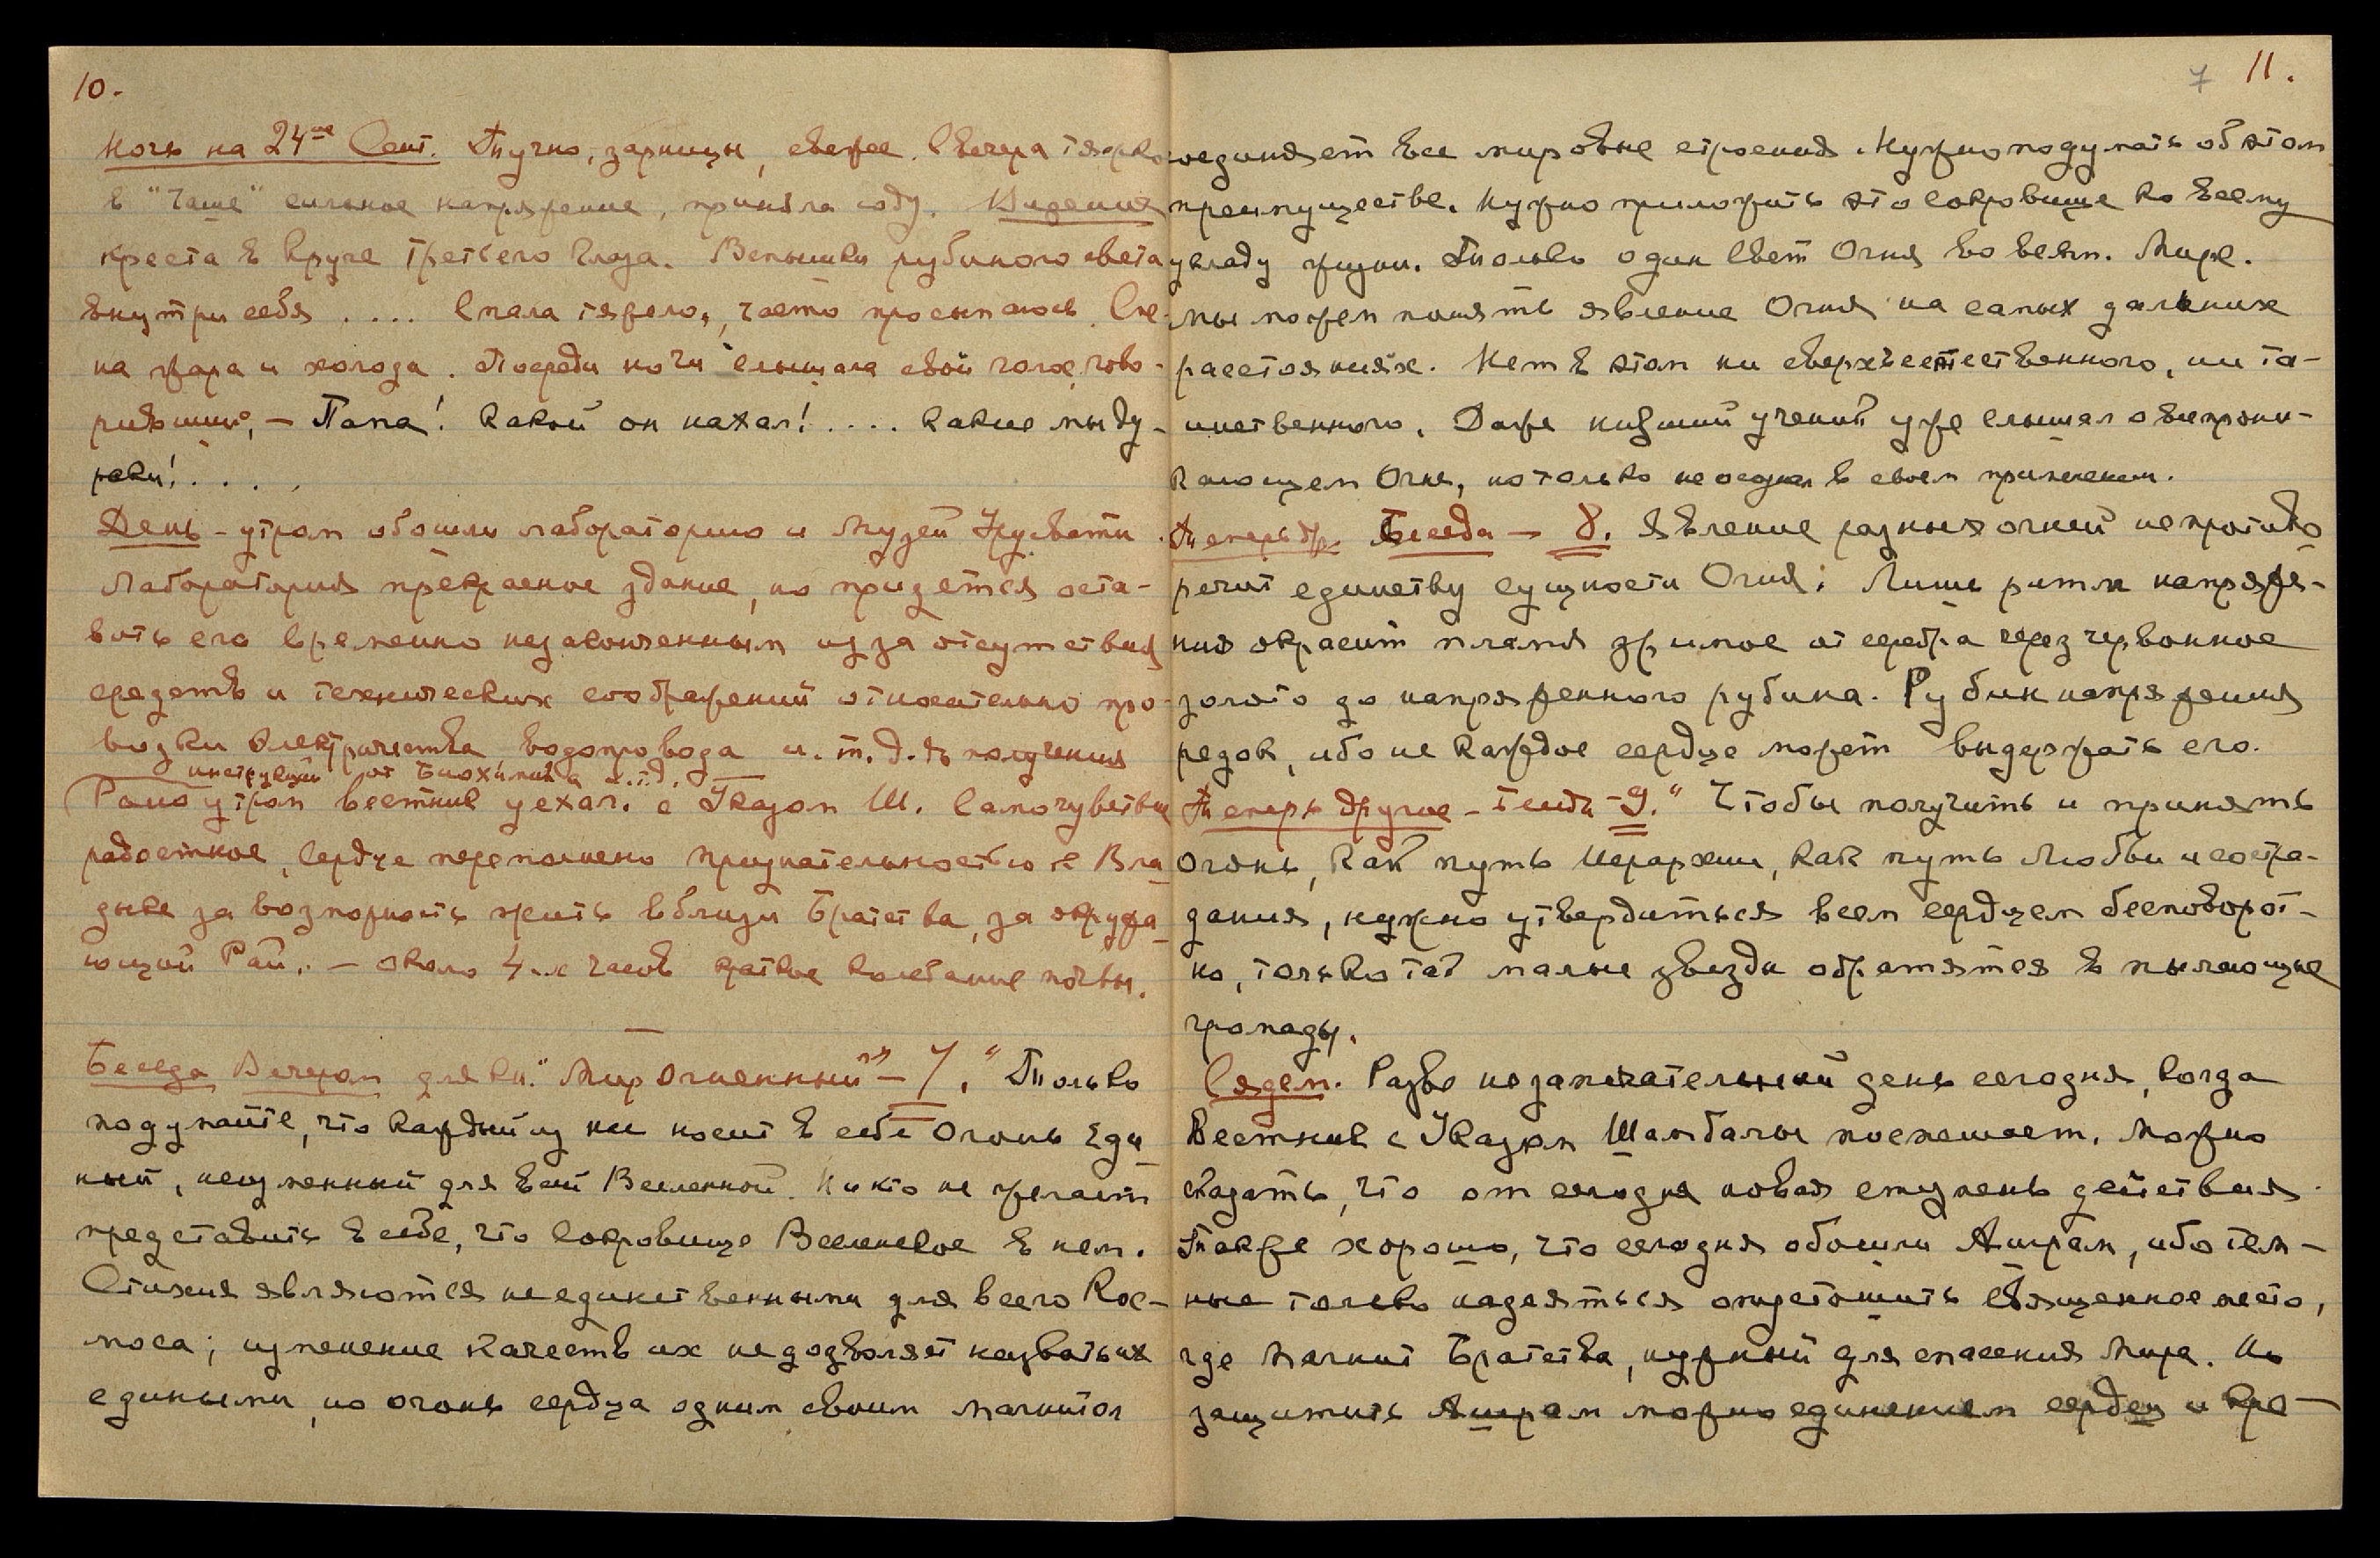 10.
Ночь на 24ое Сент. Тучно, зарницы, свежее. С вечера тяжко
в "Чаше" сильное напряжение, приняла соду. Видение
креста в круге третьего глаза. Вспышки рубиного света
внутри себя .... Спала тяжело, часто просыпаюсь. Сме-
на жара и холода. Посреди ночи слышала свой голос, гово-
ривший, — Папа! Какой он нахал! .... Какие мы ду-
раки! ....
День - утром обошли лабораторию и Музей Урусвати.
Лаборатория прекрасное здание, но придется оста-
вить его временно незаконченным из за отсутствия
средств и технических соображений относительно про-
возки электричества водопровода и. т. д. и получения
инструкций от Биохимика и.т.д.
Рано утром вестник уехал. с Указом Ш. Самочувствие
радостное, сердце переполнено признательностью к Вла-
дыке за возможность жить вблизи Братства, за окружа-
ющий Рай. — около 4-х часов краткое колебание почвы.
Беседа Вечером для кн. "Мир Огненный" — 7. "Только
подумайте, что каждый из нас носит в себе Огонь Еди-
ный, неизменный для всей Вселенной. Никто не желает
представить в себе, что сокровище Вселенское в нем.
Стихия являются не единственными для всего Кос-
моса; изменение качеств их не дозволяет назвать их
едиными, но огонь сердца одним своим магнитом
7 11.
соединяет все мировые строения. Нужно подумать об этом
преимуществе. Нужно приложить это сокровище ко всему
укладу жизни. Только один Свет Огня во всем. Мире.
мы можем понять явление Огня на самых дальних
расстояниях. Нет в этом ни сверхъестественного, ни та-
инственного. Даже низший ученик уже слышал о всепрони-
кающем Огне, но только не осознал в своем применении.
Теперь др. Беседа — 8. Явление разных огней не противо-
речит единству сущности Огня; Лишь ритм напряже-
ния окрасит пламя зримое от серебра через червонное
золото до напряженного рубина. Рубин напряжения
редок, ибо не каждое сердце может выдержать его.
Теперь другие - беседы - 9. "Чтобы получить и принять
огонь, как путь Иерархии, как путь Любви и состра-
дания, нужно утвердиться всем сердцем бесповорот-
но, только так малые звезды обратятся в пылающие
громады.
Сядем. Разве не замечательный день сегодня, когда
Вестник с Указом Шамбалы поспешает. Можно
сказать, что от сегодня новая ступень действия.
Также хорошо, что сегодня обошли Ашрам, ибо тем-
ные только надеяться опустошить священное место,
где Магнит Братства, нужный для спасения Мира. Но
защитить Ашрам можно единением сердец и кре-